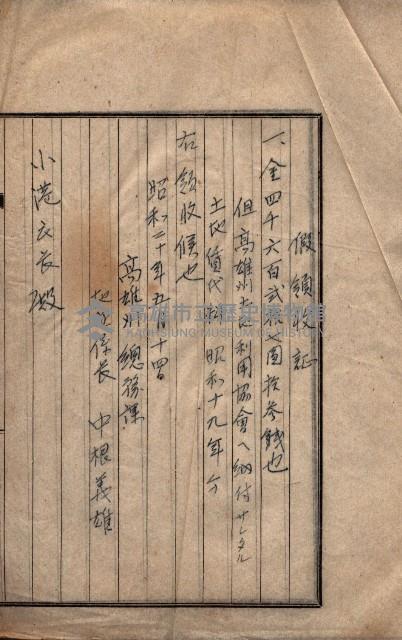 假領收証
一、金四千六百弍拾七圓拾參錢也
但高雄州土地利用協會ヘ納付サレタル
土地賃代 昭和十九年分
右領收候也
昭和二十年五月十四日
高雄州總務課
地方係長 中根義雄
小港庄長殿
高雄市立歷史博物館
KAOHSIUNG MUSEUM OF HISTORY